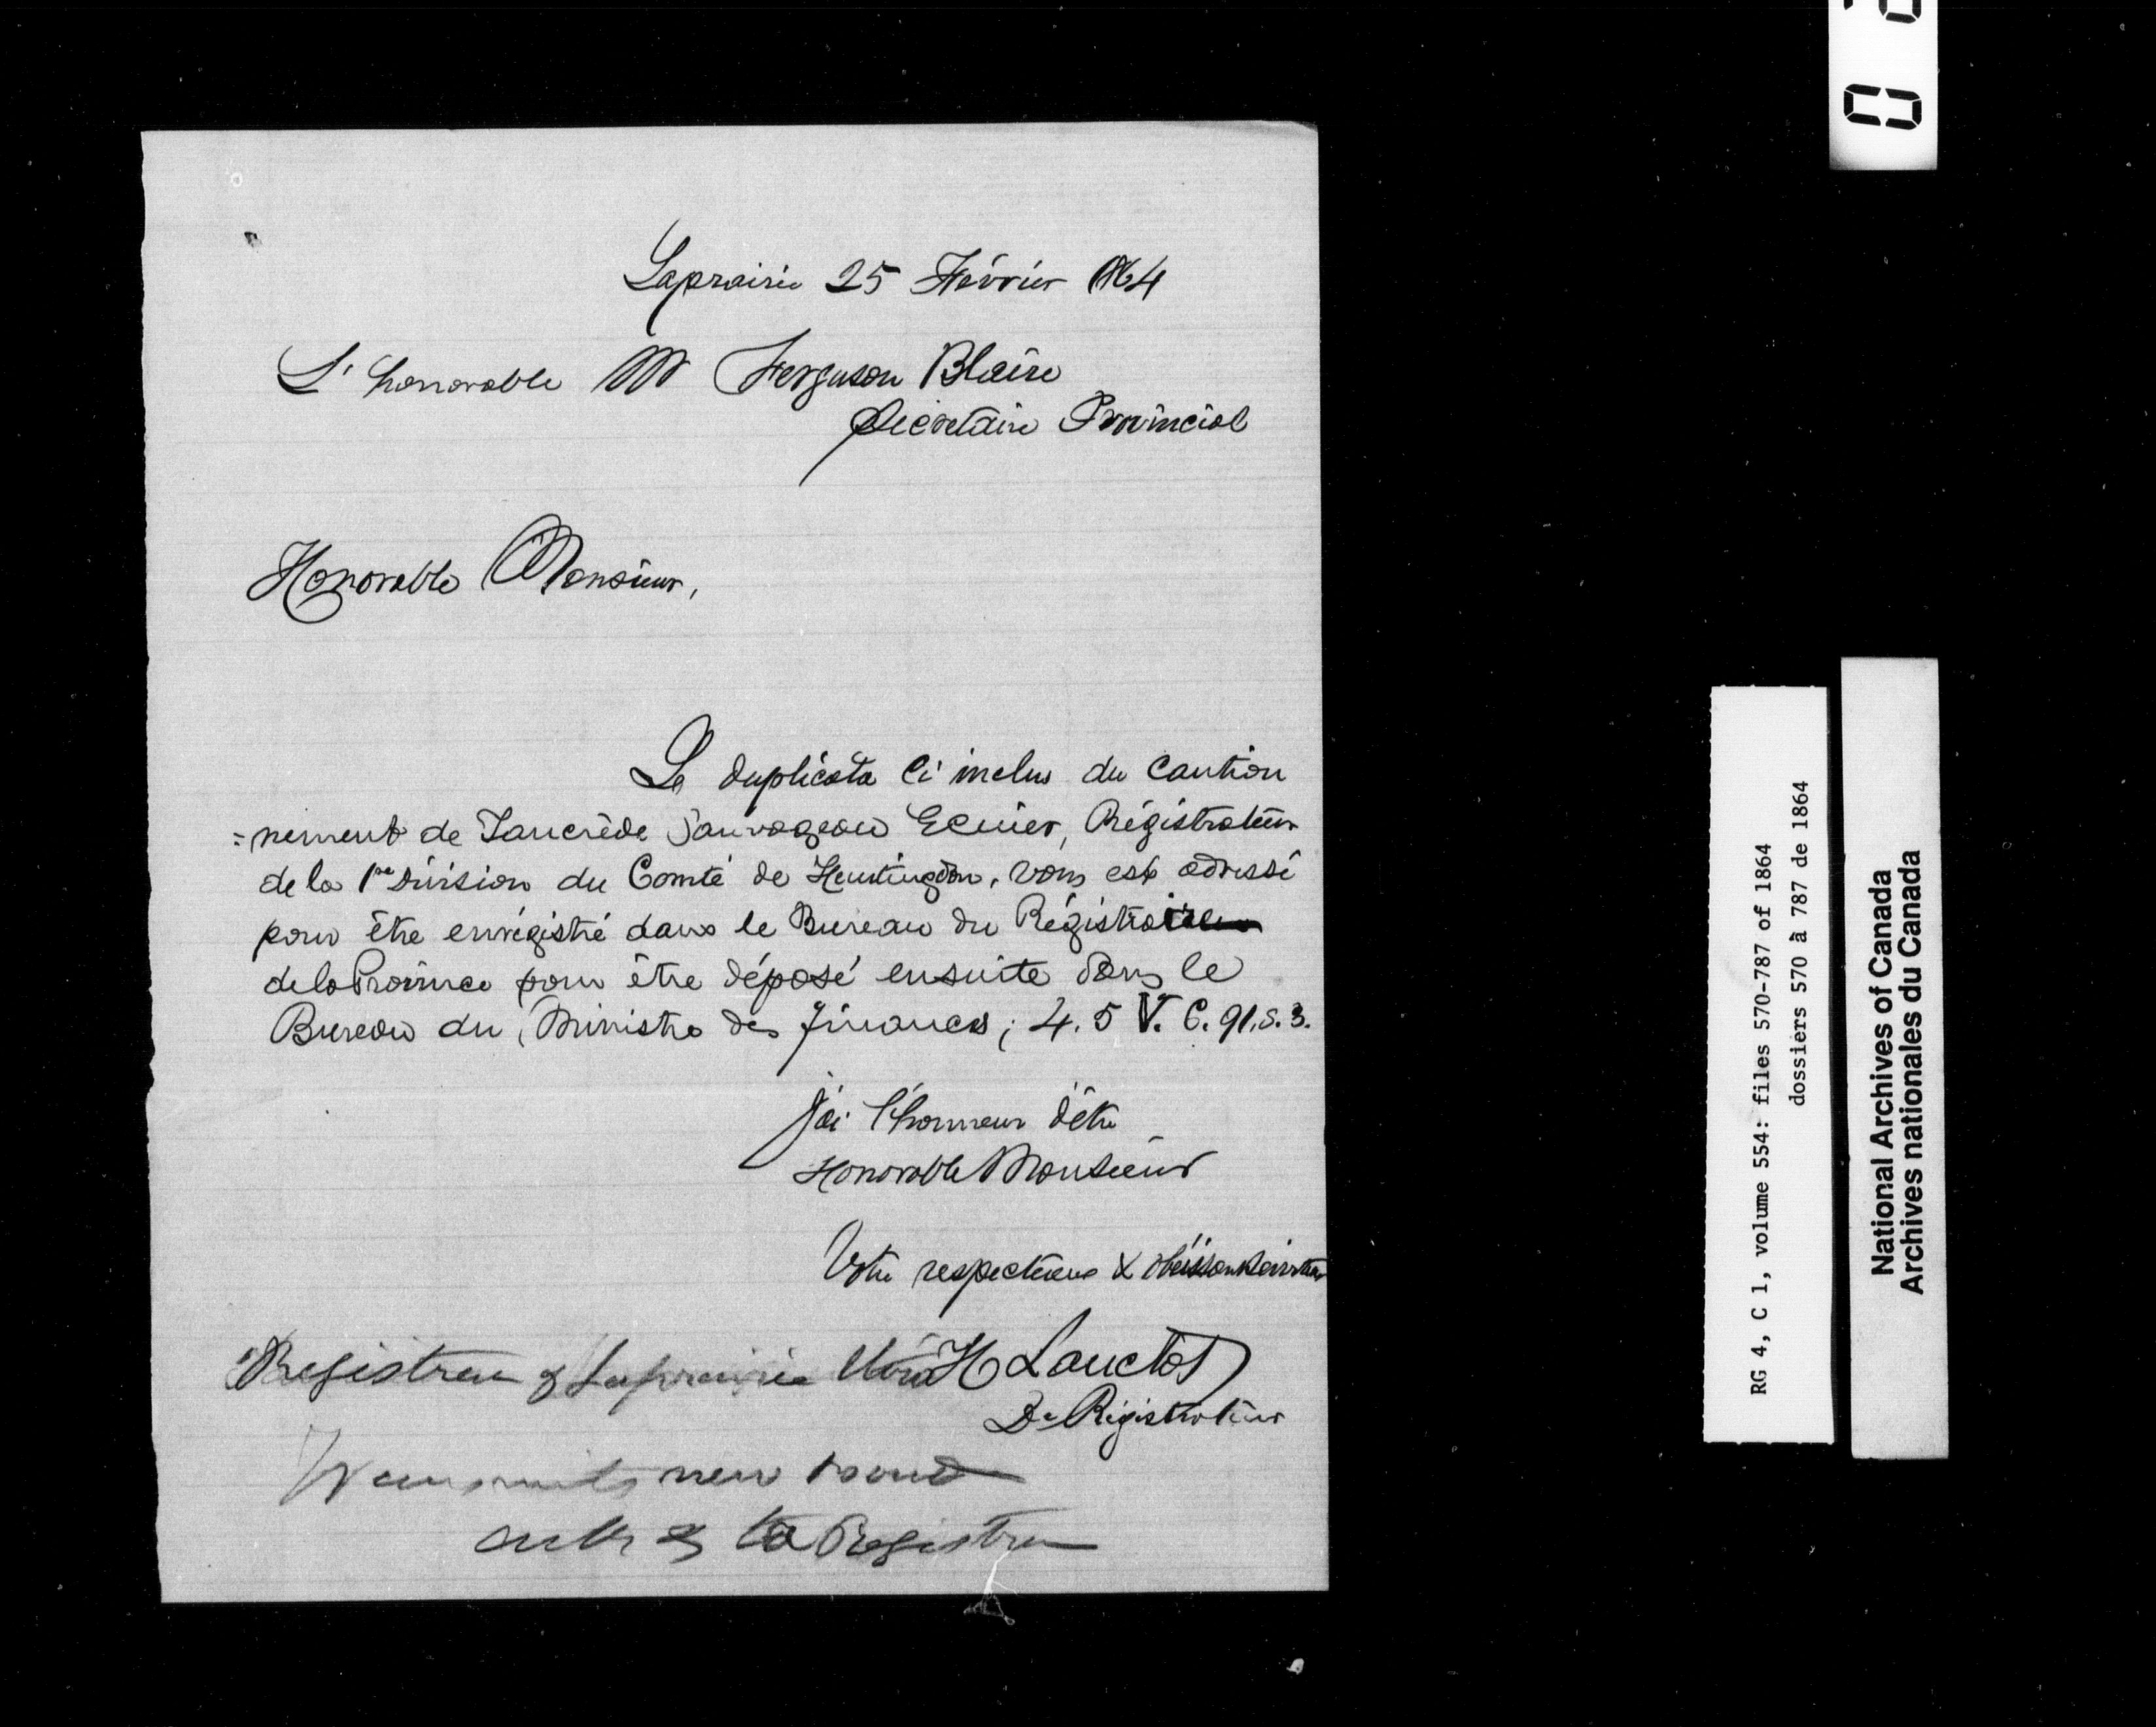 Laprairie 25 Février 1864
L'honorable Mr Ferguson Blaire
Secretaire Provincial
Honorable Monsieur,
Le duplicata ci inclus du caution
=nement de Tancrède Sauvageau Ecuier, Régistrateur
de la 1re Division du Comté de Huntingdon, vous est adressé
pour être enrégistré dans le Bureau du Régistraire
de la Province pour être déposé ensuite dans le
Bureau du Ministre des finances; 4. 5 V. C. 91. s. 3.
J'ai l'honneur d'être
Honorable Monsieur
Votre respectueux & obéissant serviteur
H Lanctot
D. Régistrateur
Registrar of Laprairie
new bond
to Registrar
RG 4, C 1, volume 554: files 570-787 of 1864
dossiers 570 à 787 de 1864
National Archives of Canada
Archives nationales du Canada